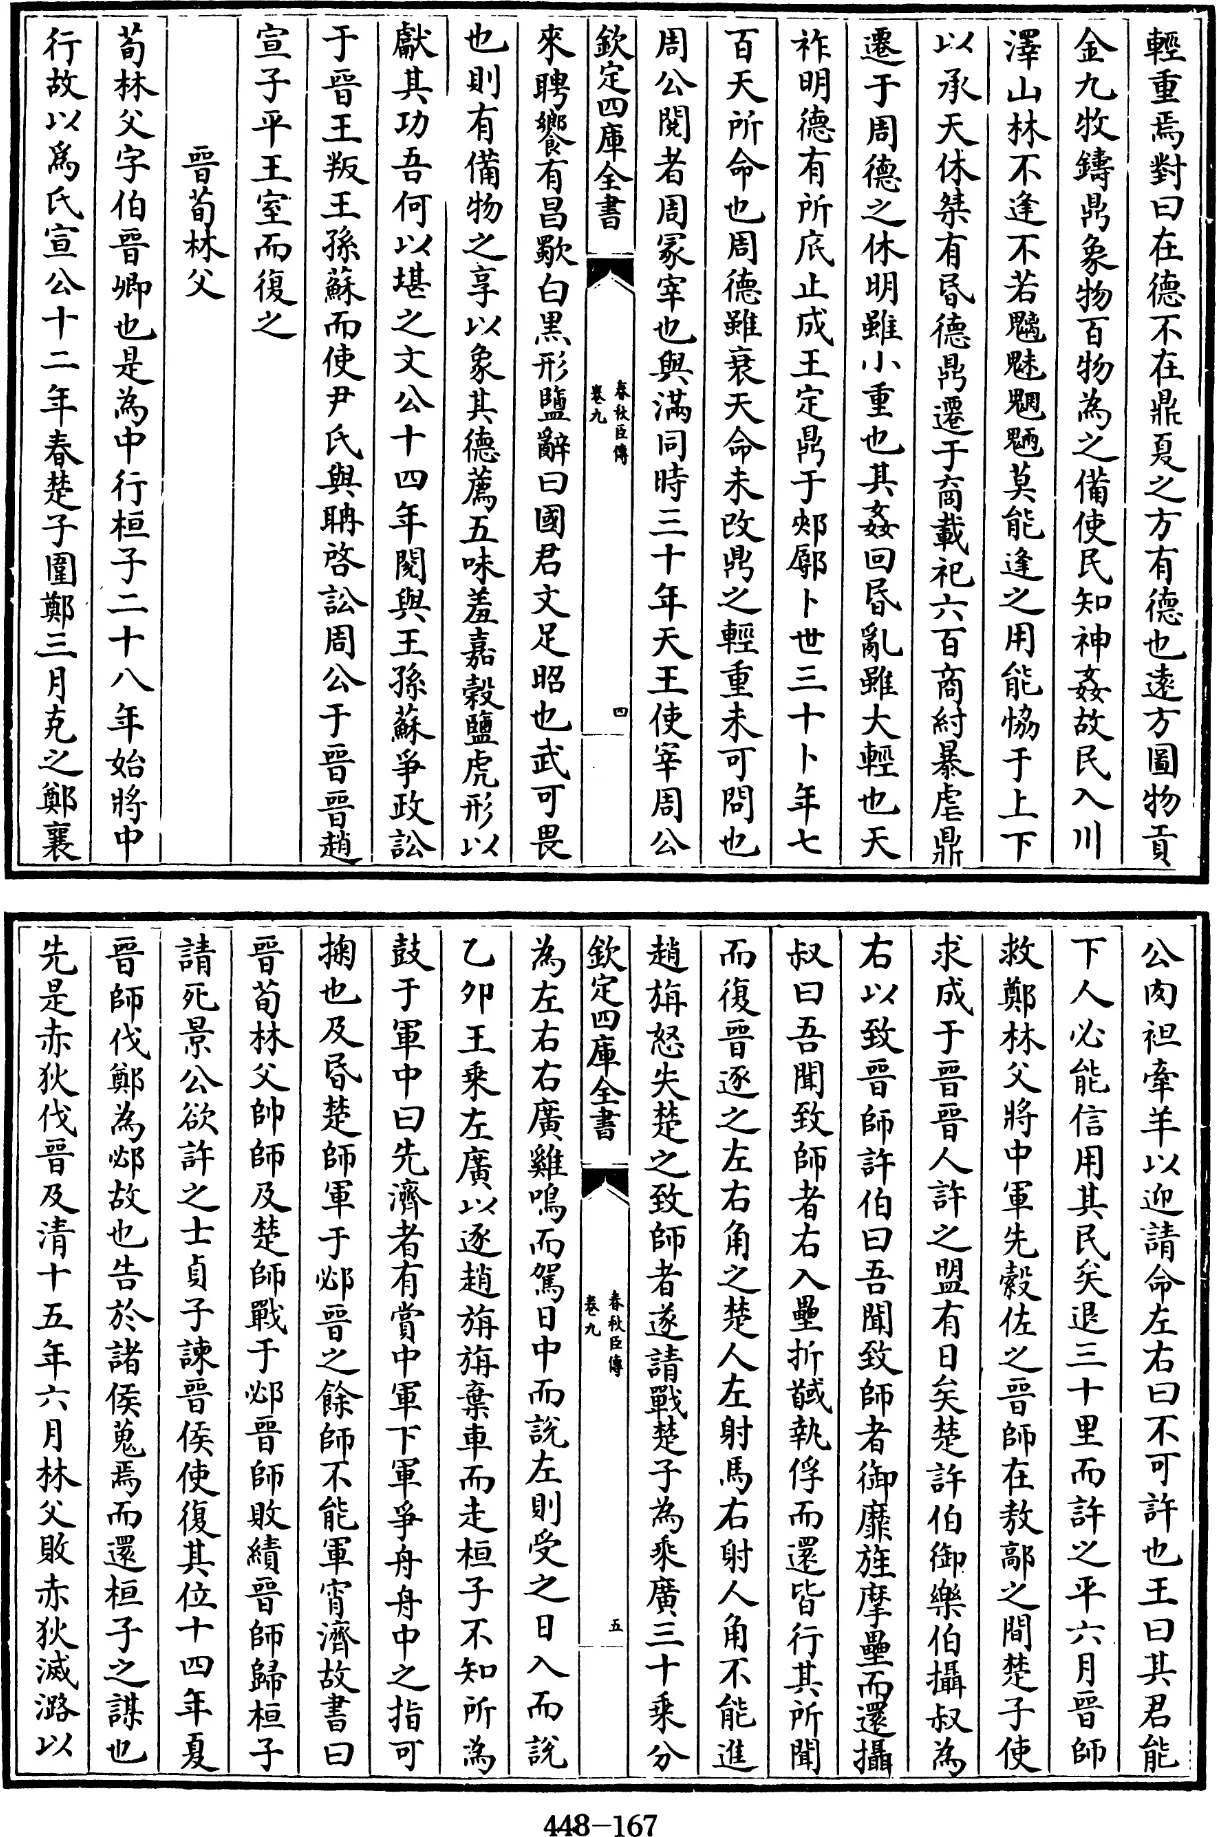 輕重焉對曰在德不在鼎夏之方有德也遠方圖物貢
金九牧鑄鼎象物百物為之備使民知神姦故民入川
澤山林不逢不若魑魅魍魎莫能逢之用能恊于上下
以承天休桀有昏德鼎遷于商載祀六百商紂暴虐鼎
遷于周德之休明雖小重也其姦回昏亂雖大輕也天
祚明德有所底止成王定鼎于郟鄏卜世三十卜年七
百天所命也周德雖衰天命未改鼎之輕重未可問也
周公閱者周冢宰也與滿同時三十年天王使宰周公
欽定四庫全書
春秋臣傳
卷九
四
來聘饗有昌歜白黒形鹽辭曰國君文足昭也武可畏
也則有備物之享以象其德薦五味羞嘉穀鹽虎形以
獻其功吾何以堪之文公十四年閱與王孫蘇爭政訟
于晉王叛王孫蘇而使尹氏與聃啓訟周公于晉晉趙
宣子平王室而復之
晉荀林父
荀林父字伯晉卿也是為中行桓子二十八年始將中
行故以爲氏宣公十二年春楚子圍鄭三月克之鄭襄
公肉袒牽羊以迎請命左右曰不可許也王曰其君能
下人必能信用其民矣退三十里而許之平六月晉師
救鄭林父將中軍先縠佐之晉師在敖鄗之間楚子使
求成于晉晉人許之盟有日矣楚許伯御樂伯攝叔為
右以致晉師許伯曰吾聞致師者御靡旌摩壘而還攝
叔曰吾聞致師者右入壘折馘執俘而還皆行其所聞
而復晉逐之左右角之楚人左射馬右射人角不能進
趙旃怒失楚之致師者遂請戰楚子為乘廣三十乘分
欽定四庫全書
春秋臣傳
卷九
五
為左右右廣雞鳴而駕日中而說左則受之日入而說
乙夘王乘左廣以逐趙旃旃棄車而走桓子不知所為
鼓于軍中曰先濟者有賞中軍下軍爭舟舟中之指可
掬也及昏楚師軍于邲晉之餘師不能軍宵濟故書曰
晉荀林父帥師及楚師戰于邲晉師敗績晉師歸桓子
請死景公欲許之士貞子諫晉侯使復其位十四年夏
晉師伐鄭為邲故也告於諸侯蒐焉而還桓子之謀也
先是赤狄伐晉及清十五年六月林父敗赤狄滅潞以
448-167